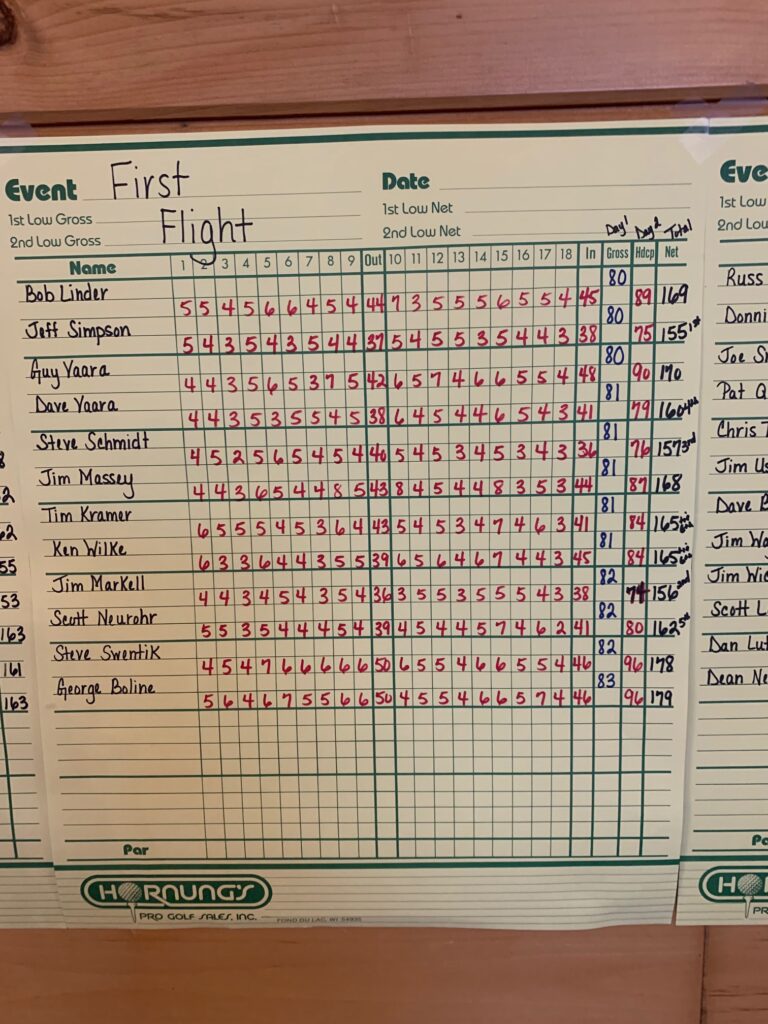 Event First Flight
1st Low Gross
2nd Low Gross
Date
1st Low Net
2nd Low Net
Day 1 Day 2 Total
Name 1 2 3 4 5 6 7 8 9 Out 10 11 12 13 14 15 16 17 18 In Gross Hdcp Net
Bob Linder 5 5 4 5 6 6 4 5 4 44 7 3 5 5 5 6 5 5 4 45 80 89 169
Jeff Simpson 5 4 3 5 4 3 5 4 4 37 5 4 5 5 3 5 4 4 3 38 80 75 155 1st
Guy Yaara 4 4 3 5 6 5 3 7 5 42 6 5 7 4 6 6 5 5 4 48 80 90 170
Dave Yaara 4 4 3 5 3 5 5 4 5 38 6 4 5 4 4 6 5 4 3 41 81 79 160 4th
Steve Schmidt 4 5 2 5 6 5 4 5 4 40 5 4 5 3 4 5 3 4 3 36 81 76 157 3rd
Jim Massey 4 4 3 6 5 4 4 8 5 43 8 4 5 4 4 8 3 5 3 44 81 87 168
Tim Kramer 6 5 5 5 4 5 3 6 4 43 5 4 5 3 4 7 4 6 3 41 81 84 165
Ken Wilke 6 3 3 6 4 4 3 5 5 39 6 5 6 4 6 7 4 4 3 45 81 84 165
Jim Markell 4 4 3 4 5 4 3 5 4 36 3 5 5 3 5 5 5 4 3 38 82 74 156 2nd
Scott Neurohr 5 5 3 5 4 4 4 5 4 39 4 5 4 4 5 7 4 6 2 41 82 80 162 5th
Steve Swentik 4 5 4 7 6 6 6 6 6 50 6 5 5 4 6 6 5 5 4 46 82 96 178
George Boline 5 6 4 6 7 5 5 6 6 50 4 5 5 4 6 6 5 7 4 46 83 96 179
Par
HORNUNG'S
PRO GOLF SALES, INC.
FOND DU LAC, WI 54935
8
2
62
55
53
163
161
163
Eve
1st Low
2nd Low
Russ
Donni
Joe S
Pat Q
Chris T
Jim Us
Dave B
Jim Wa
Jim Wic
Scott L
Dan Lut
Dean Ne
Pa
HO
PR